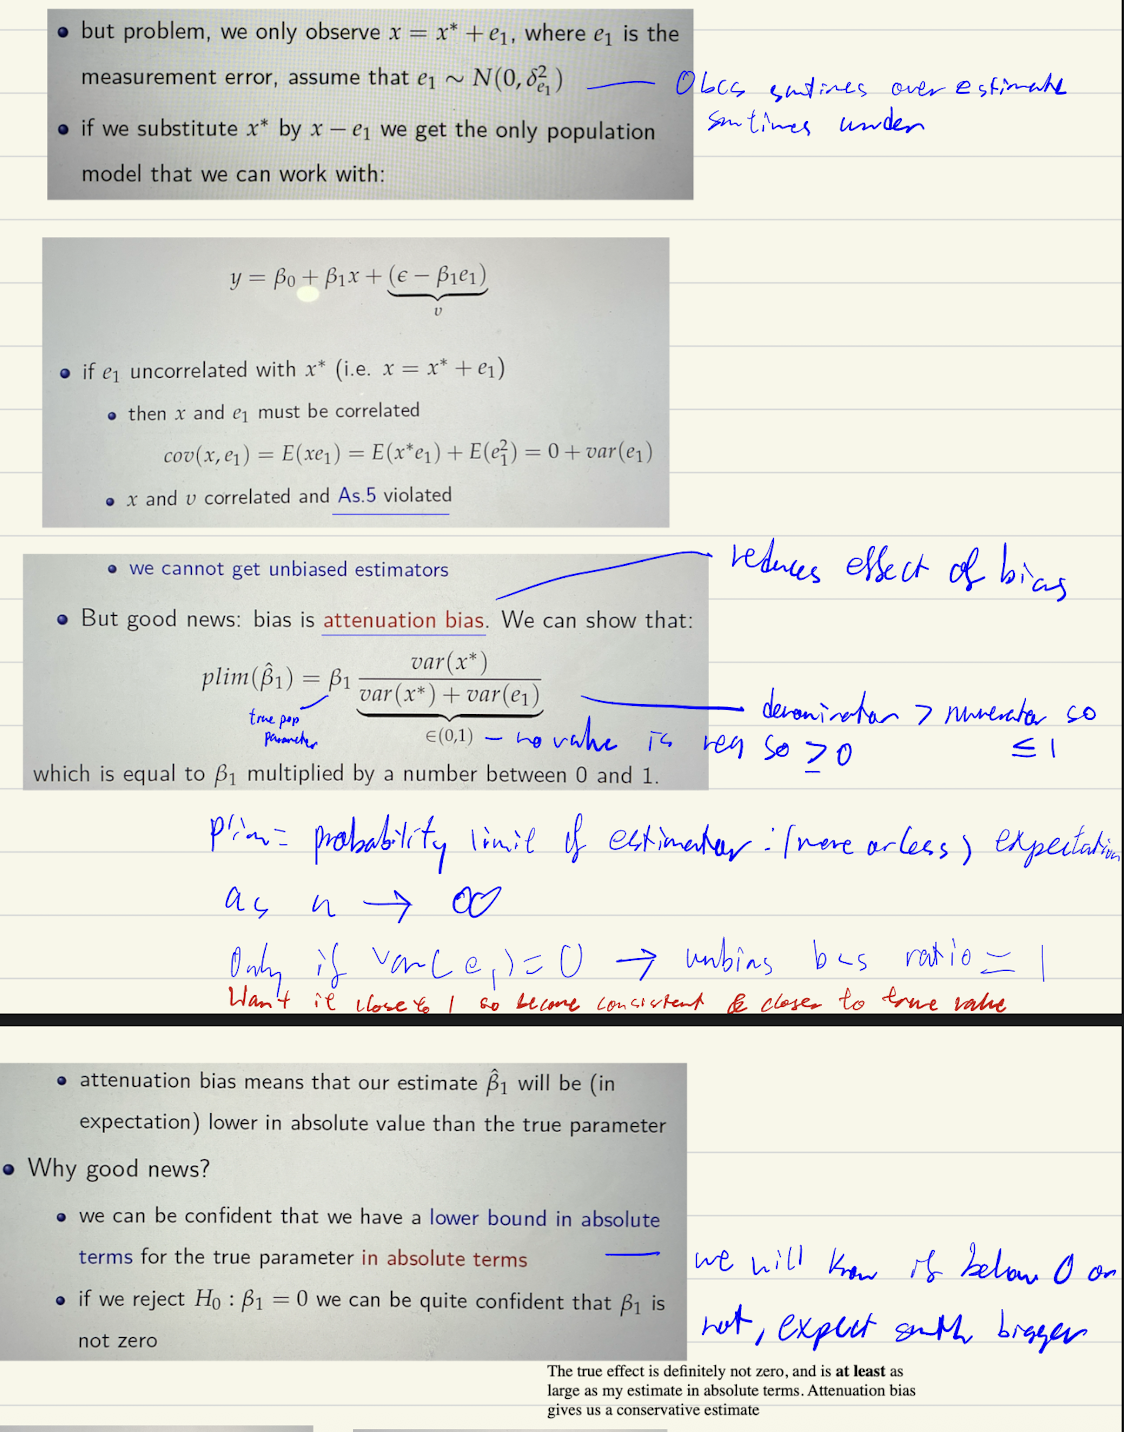 • but problem, we only observe x = x* + e₁, where e₁ is the
measurement error, assume that e₁ ~ N(0, δ²ₑ₁)
over estimate
under
• if we substitute x* by x − e₁ we get the only population
model that we can work with:
y = β₀ + β₁x + (ϵ − β₁e₁)
υ
• if e₁ uncorrelated with x* (i.e. x = x* + e₁)
• then x and e₁ must be correlated
cov(x, e₁) = E(xe₁) = E(x*e₁) + E(e₁²) = 0 + var(e₁)
• x and υ correlated and As.5 violated
• we cannot get unbiased estimators
reduces effect of bias
• But good news: bias is attenuation bias. We can show that:
plim(β̂₁) = β₁ var(x*) / var(x*) + var(e₁)
true pop
parameter
denominator > numerator so
≤ 1
∈(0,1) – no value is neg so ≥ 0
which is equal to β₁ multiplied by a number between 0 and 1.
plim = probability limit of estimator : (more or less) expectation
as n → ∞
Only if var(e₁) = 0 → unbias bcs ratio = 1
Want it close to 1 so become consistent & closer to true value
• attenuation bias means that our estimate β̂₁ will be (in
expectation) lower in absolute value than the true parameter
• Why good news?
• we can be confident that we have a lower bound in absolute
terms for the true parameter in absolute terms
we will know if below 0 or
not, expect smth bigger
• if we reject H₀ : β₁ = 0 we can be quite confident that β₁ is
not zero
The true effect is definitely not zero, and is at least as
large as my estimate in absolute terms. Attenuation bias
gives us a conservative estimate